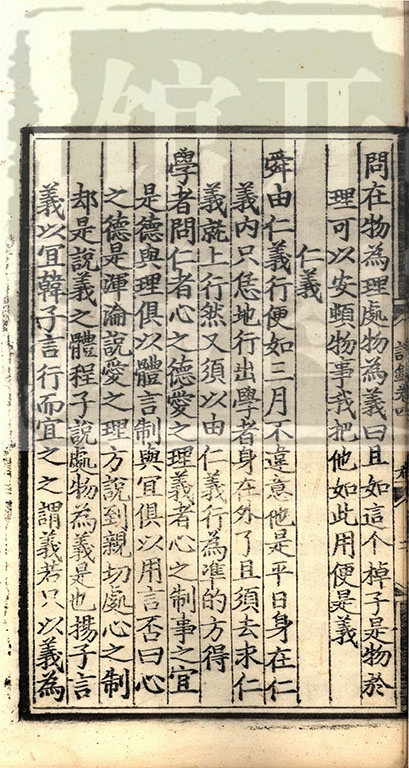 問在物為理處物為義曰且如這个棹子是物於
理可以安頓物事我把他如此用便是義
仁義
舜由仁義行便如三月不違意他是平日身在仁
義內只恁地行出學者身在外了且須去求仁
義就上行然又須以由仁義行為準的方得
學者問仁者心之德愛之理義者心之制事之宜
是德與理俱以體言制與宜俱以用言否曰心
之德是渾淪說愛之理方說到親切處心之制
却是說義之體程子說處物為義是也揚子言
義以宜韓子言行而宜之之謂義若只以義為